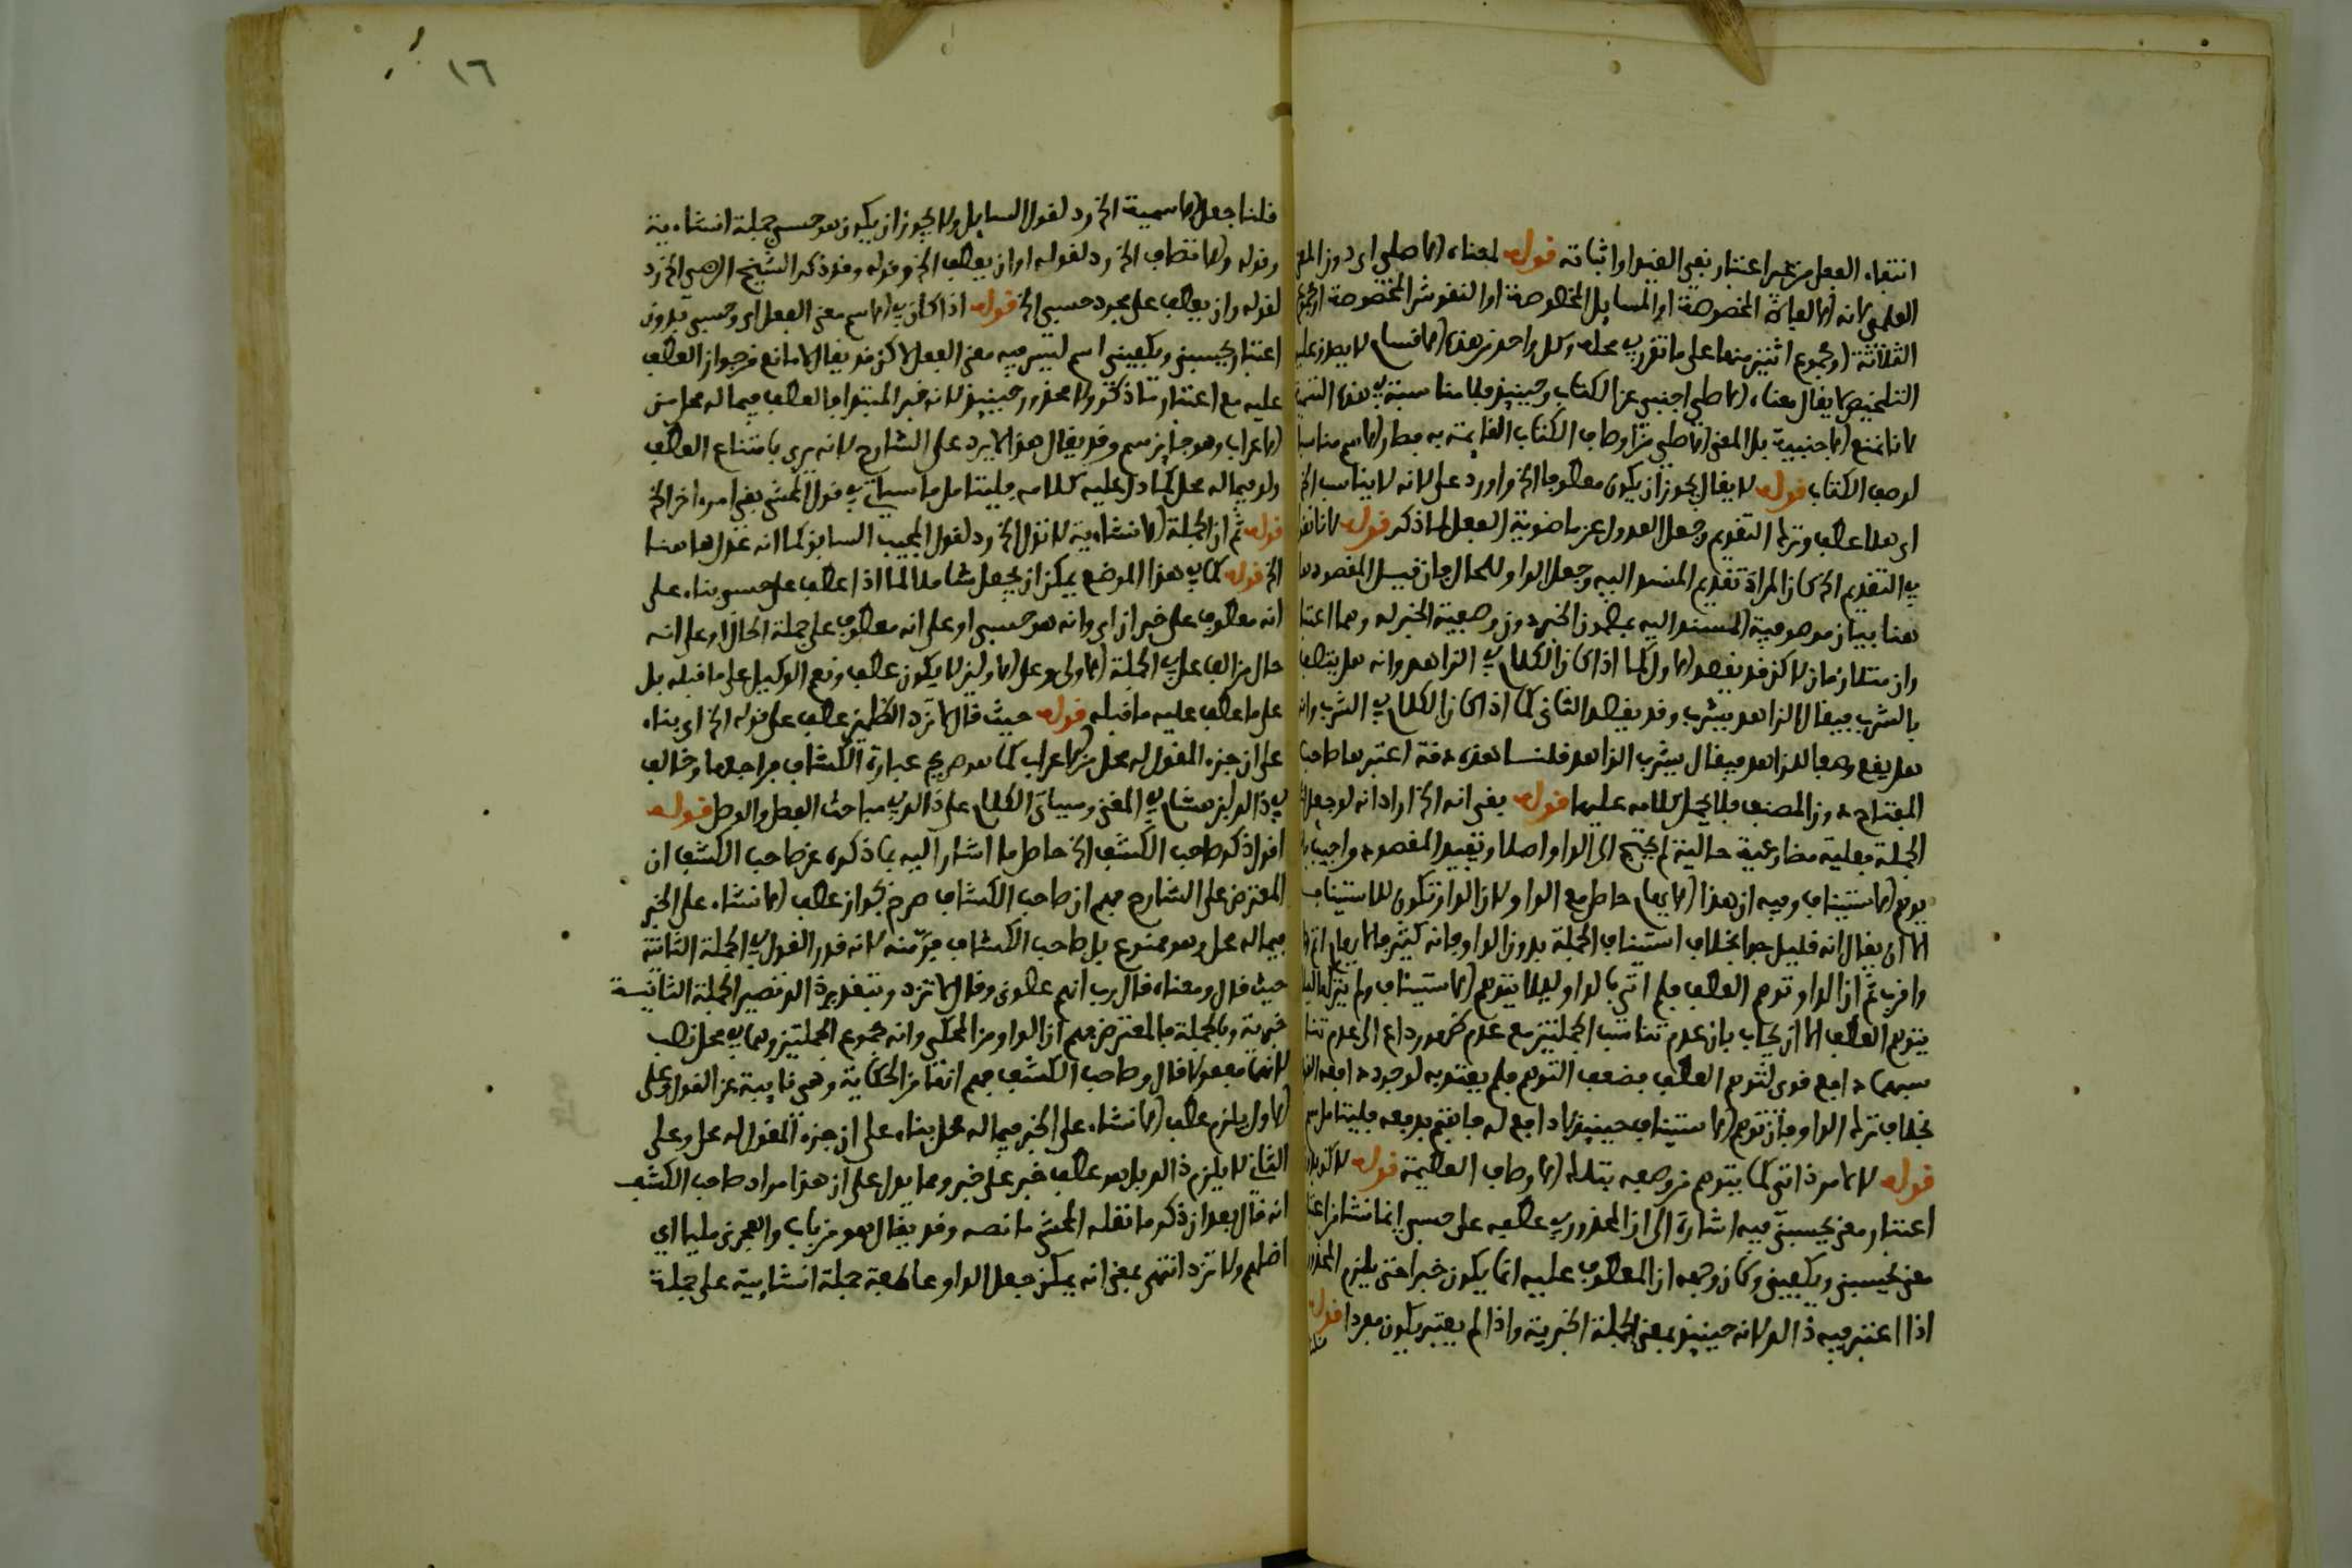 انتفاء الفعل من غير اعتبار نفي القيد او اثباته قوله لمعناه الاصلي اى دون المعنى
العلمي لانه اما العبارة المخصوصة او المسايل المخصوصة او النقوش المخصوصة او مجموع
الثلاثة او مجموع اثنين منها على ما تقرر في محله وكل واحد من هذه الاقسام لا يصدق عليه
التلخيص لا يقال معناه الاصلي اجنبي عن الكتاب وحينيذ فلا مناسبة في هذه التسمية
لانا نمنع الاجنبية بل المعنى الاصلي من اوصاف الكتاب القايمة به فصار الاسم مناسبا
لوصف الكتاب قوله لا يقال يجوز ان يكون معطوفا الخ اورد على لانه لا يناسب الخ
اى هلا عطف وترك التقديم وجعل العدول عن ماضوية الفعل لما ذكر قوله لانا نقول
في التقديم الخ كان المراد تقديم المسند اليه وجعل الواو للحال فان قيل المقصود
هنا بيان موصوفية المسند اليه بمضمون الخبر دون وصفية الخبر له وهما اعتبار
وان متلازمان لاكن قد يقصد الاول كما اذا كان الكلام في الزاهد وانه هل يتصف
بالشرب فيقال الزاهد يشرب وقد يقصد الثاني كما اذا كان الكلام في الشرب وانه
هل يقع وصفا للزاهد فيقال يشرب الزاهد قلنا هذه دقة اعتبرها صاحب
المفتاح دون المصنف فلا يحمل كلامه عليها قوله يعنى انه الخ اراد انه لو جعل
الجملة فعلية مضارعية حالية لم يحتج الى الواو اصلا وتقييد المقصود واجيب
يوهم الاستيناف وفيه ان هذا الايهام حاصل مع الواو لان الواو تكون للاستيناف
الا ان يقال انه قليل جدا بخلاف استيناف الجملة بدون الواو فانه كثير فالايهام اتم
واقرب ثم ان الواو توهم العطف فلم اتى بالواو ليلا يتوهم الاستيناف ولم يترك ليلا
يتوهم العطف الا ان يجاب بان عدم تناسب الجملتين مع عدم ظهور داع الى عدم
سبهما دافع قوى لتوهم العطف فضعف التوهم فلم يعتد به لوجود دافعه
بخلاف ترك الواو فان توهم الاستيناف حينيذ لا دافع له فاهتم بدفعه فليتامل
قوله لا لامر ذاتي كما يتوهم من وصفه بتلك الاوصاف العظيمة قوله لاكن بلا
اعتبار معنى يحسبني فيه اشارة الى ان المحذور في عطفه على حسبي انما نشا من اعتبار
معنى يحسبني ويكفيني وكان وجهه ان المعطوف عليه انما يكون خبرا حتى يلزم المحذور
اذا اعتبر فيه ذالك لانه حينيذ بمعنى الجملة الخبرية واذا لم يعتبر يكون مفردا قوله
١٦
قلنا جعل الاسمية الخ رد لقول السايل ولا يجوز ان يكون هو حسبي جملة انشاءية
وقوله ولا تضاف الخ رد لقوله او ان يعطف الخ وقوله وقد ذكر الشيخ الرضى الخ رد
لقوله وان يعطف على مجرد حسبي الخ قوله اذا كان في الاسم معنى الفعل اى وحسبي بدون
اعتبار يحسبني ويكفيني اسم ليس فيه معنى الفعل لاكن قد يقال لا مانع من جواز العطف
عليه مع اعتبار ما ذكر ولا محذور حينيذ لانه خبر المبتدا فالعطف فيما له محل من
الاعراب وهو جايز سم وقد يقال هذا لا يرد على الشارح لانه يرى بامتناع العطف
ولو فيما له محل كما دل عليه كلامه فليتامل ما سياتي في قول المحشى بقي امر اخر الخ
قوله ثم ان الجملة الانشاءية لا تقول الخ رد لقول المجيب السابق كما انه عدل هاهنا
الخ قوله كما في هذا الموضع يمكن ان يجعل شاملا لما اذا عطف على حسبي بناء على
انه معطوف على خبر ان اى وانه هو حسبي او على انه معطوف على جملة الحال او على انه
حال من الف على في الجملة الاولى وعلى الاولين لا يكون عطف ونعم الوكيل على ما قبله بل
على ما عطف عليه ما قبله قوله حيث قال لا تزد الظلمين عطف على قوله الخ اى بناء
على ان جزء المقول له محل من الاعراب كما هو صريح عبارة الكشاف فراجعها وخالف
في ذالك ابن هشام في المغنى وسياتي الكلام على ذالك في مباحث الفصل والوصل قوله
اقول ذكر صاحب الكشف الخ حاصل ما اشار اليه بما ذكره عن صاحب الكشف ان
المعترض على الشارح فهم ان صاحب الكشاف صرح بجواز عطف الانشاء على الخبر
فيما له محل وهو ممنوع بل صاحب الكشاف فر منه لانه قدر القول في الجملة الثانية
حيث قال ومعناه قال رب انهم عصوني وقال لا تزد وبتقديره القول تصير الجملة الثانية
خبرية وبالجملة فالمعترض فهم ان الواو من المحكي وانه مجموع الجملتين وهما في محل نصب
لانهما مفعولا قال وصاحب الكشف فهم انها من الحكاية وهي نايبة عن القول وعلى
الاول يلزم عطف الانشاء على الخبر فيما له محل بناء على ان جزء المقول له محل وعلى
الثاني لا يلزم ذالك بل هو عطف خبر على خبر ومما يدل على ان هذا مراد صاحب الكشف
انه قال بعد ان ذكر ما نقله المحشى ما نصه وقد يقال هو من باب واهجرني مليا اى
اضلهم ولا تزد انتهى بمعنى انه يمكن جعل الواو عاطفة جملة انشايية على جملة